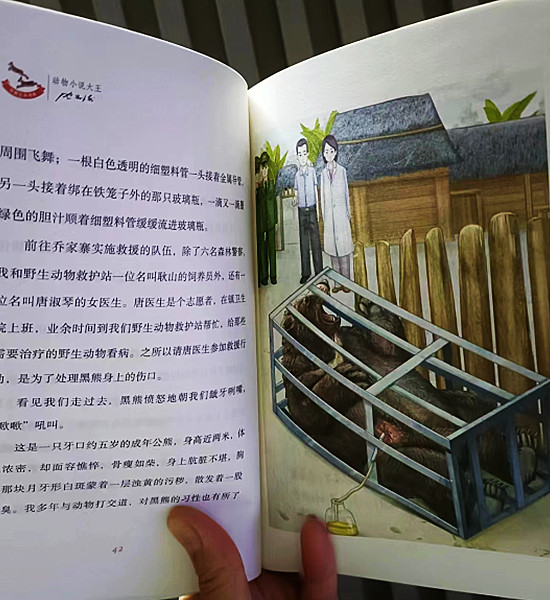 动物小说大王
沈石溪
周围飞舞；一根白色透明的细塑料管一头接着金属导管，
另一头接着绑在铁笼子外的那只玻璃瓶，一滴又一滴墨
绿色的胆汁顺着细塑料管缓缓流进玻璃瓶。
前往乔家寨实施救援的队伍，除了六名森林警察、
我和野生动物救护站一位名叫耿山的饲养员外，还有一
位名叫唐淑琴的女医生。唐医生是个志愿者，在镇卫生
院上班，业余时间到我们野生动物救护站帮忙，给那些
需要治疗的野生动物看病。之所以请唐医生参加救援行
动，是为了处理黑熊身上的伤口。
看见我们走过去，黑熊愤怒地朝我们龇牙咧嘴，
“欧欧”吼叫。
这是一只牙口约五岁的成年公熊，身高近两米，体
浓密，却面容憔悴，骨瘦如柴，身上肮脏不堪，胸
那块月牙形白斑蒙着一层浊黄的污秽，散发着一股
臭。我多年与动物打交道，对黑熊的习性也有所了
42